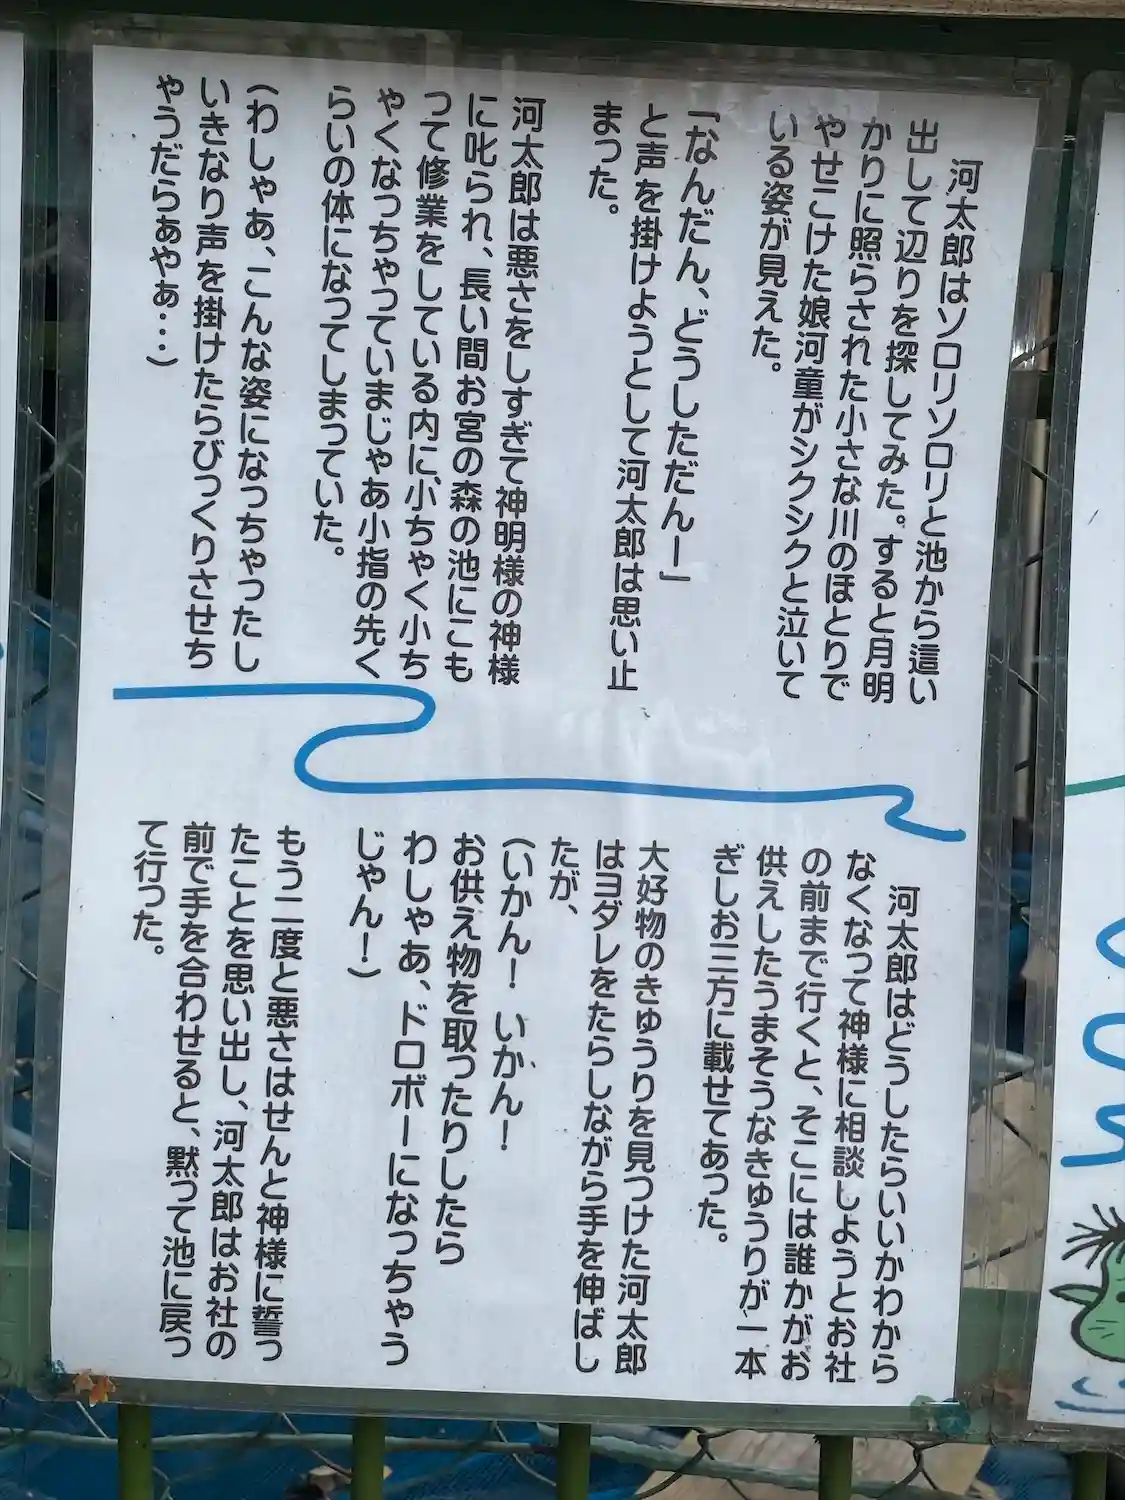 河太郎はソロリソロリと池から這い
出して辺りを探してみた。すると月明
かりに照らされた小さな川のほとりで
やせこけた娘河童がシクシクと泣いて
いる姿が見えた。
「なんだん、どうしただんー」
と声を掛けようとして河太郎は思い止
まった。
河太郎は悪さをしすぎて神明様の神様
に叱られ、長い間お宮の森の池にこも
って修業をしている内に、小ちゃく小ち
ゃくなっちゃっていまじゃあ小指の先く
らいの体になってしまっていた。
(わしゃあ、こんな姿になっちゃったし
いきなり声を掛けたらびっくりさせち
ゃうだらぁやぁ…)
河太郎はどうしたらいいかわから
なくなって神様に相談しようとお社
の前まで行くと、そこには誰かがお
供えしたうまそうなきゅうりが一本
ぎしお三方に載せてあった。
大好物のきゅうりを見つけた河太郎
はヨダレをたらしながら手を伸ばし
たが、
(いかん! いかん!
お供え物を取ったりしたら
わしゃあ、ドロボーになっちゃう
じゃん!)
もう二度と悪さはせんと神様に誓っ
たことを思い出し、河太郎はお社の
前で手を合わせると、黙って池に戻っ
て行った。